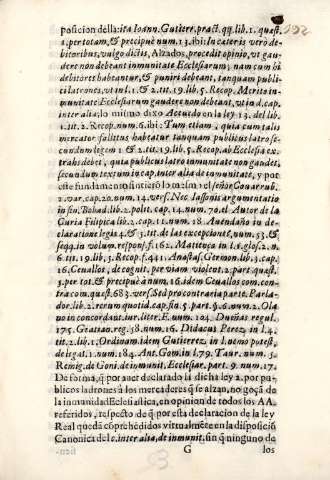 posicion della: ita Ioann. Gutierr. pract. qq. lib. 1. quæst.
1. per totam, & præcipuè num. 13. ibi: In cæteris verò de-
bitoribus, vulgo dictis, Alzados, procedit opinio, vt gau-
dere non debeant inmunitate Ecclesiarum; nam cum hi
debitores habeantur, & puniri debeant, tanquam publi-
ci latrones, vt in l. 1. & 2. tit. 19. lib. 5. Recop. Merito in-
munitate Ecclesiarum gaudere non debeant, vt in d. cap.
inter alia; lo mismo dixo Acuedo en la ley 13. del lib.
1. tit. 2. Recop. num. 6. ibi: Tum etiam, quia cum talis
mercator fallitus habeatur tanquam publicus latro se-
cundum legem 1. & 2. tit. 19. lib. 5. Recop. ab Ecclesia ex-
trahi debet, quia publicus latro inmunitate non gaudet,
secundum textum in cap. inter alia de inmunitate, y por
este fundamento sintiero lo mismo el señor Couarrub.
2. var. cap. 20. num. 14. vers. Nec Iassonis argumentatio
in fin. Bobad. lib. 2. polit. cap. 14. num. 70. el Autor de la
Curia Filipica lib. 2. cap. 11. num. 18. Auendaño in de-
claratione legis 4. & 3. tit. de las excepciones, num. 53. &
seqq. in volum. respons. f. 162. Matiença in l. 1. glos. 2. n.
6. tit. 19. lib. 5. Recop. f. 441. Anastas. Germon. lib. 3. cap.
16. Ceuallos, de cognit. per viam violent. 2. part. quæst.
3. per tot. & præcipuè à num. 16. idem Ceuallos com. con-
tra com. quæst. 683. vers. Sed pro contraria parte. Parla-
dor. lib. 2. rerum quotid. cap. fin. 5. part. §. 6. num. 2. Ola-
no in concordant. iur. litter. E. num. 124. Dueñas regul.
175. Gratian. reg. 38. num. 16. Didacus Perez, in l. 4.
tit. 2. lib. 1. Ordinam. idem Gutierrez, in l. nemo potest,
de legat. 1. num. 184. Ant. Gom. in l. 79. Taur. num. 3.
Remig. de Goni. de inmunit. Ecclesiar. part. 9. num. 17.
De forma, q̃ por auer declarado la dicha ley 2. por pu-
blicos ladrones à los mercaderes q̃ se alzan, no goçã de
la inmunidad Eclesiastica, en opinion de todos los AA.
referidos, respecto de q̃ por esta declaracion de la ley
Real quedã cõprehẽdidos virtualmẽte en la disposiciõ
Canonica del c. inter alia, de inmunit. sin q̃ ninguno de
G los